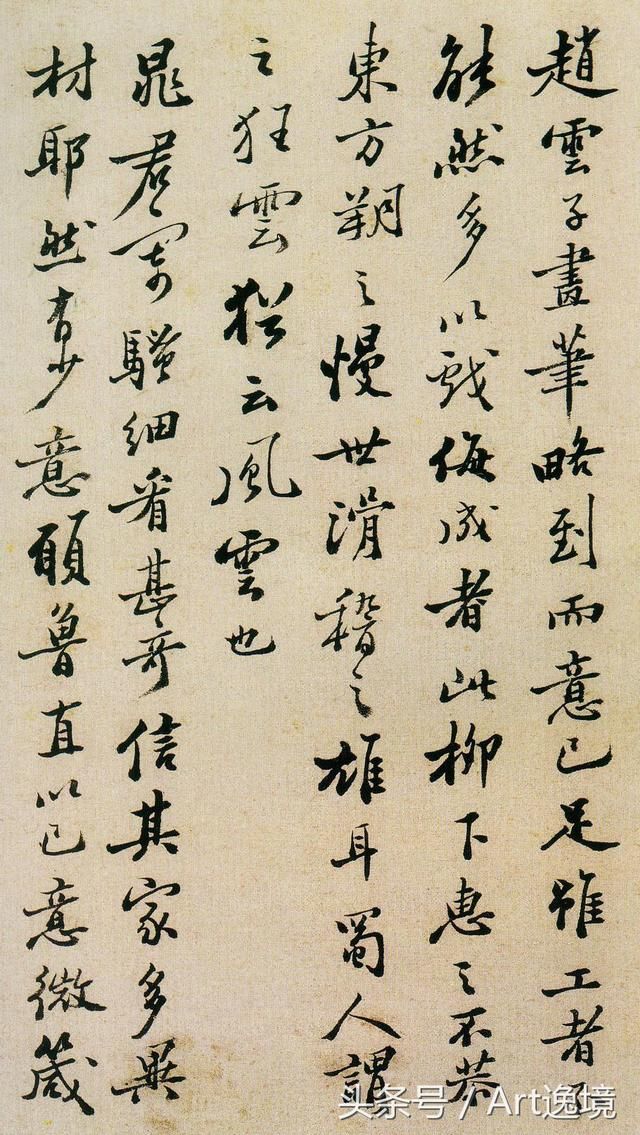 趙雲子畫筆略到而意已足雖工者不
能然多以戲侮成者此柳下惠之不恭
東方朔之慢世滑稽之雄耳蜀人謂
之狂雲猶云風雲也
晁君寄騷細看甚奇信其家多異
材耶然有少意願魯直以己意微箴
头条号 / Art逸境